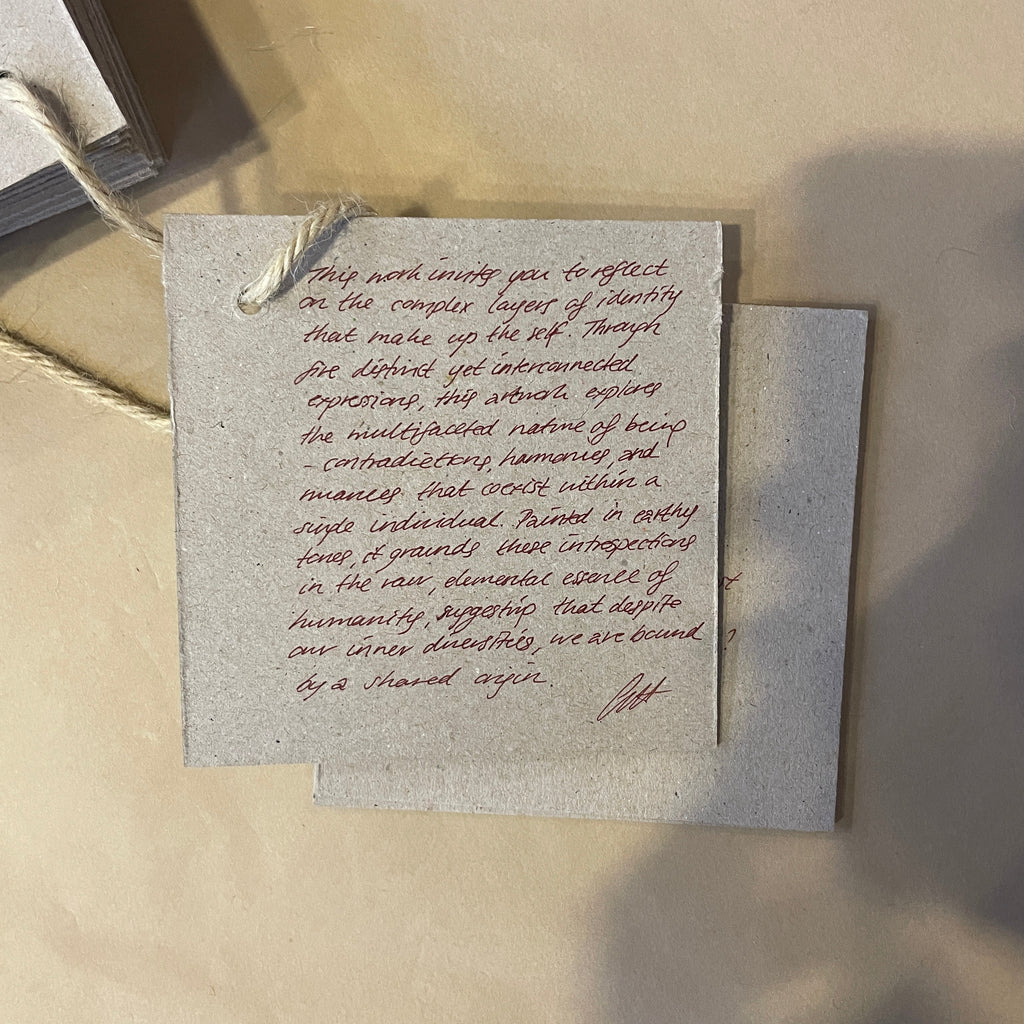 This work invites you to reflect
on the complex layers of identity
that make up the self. Through
five distinct yet interconnected
expressions, this artwork explores
the multifaceted nature of being
- contradictions, harmonies, and
nuances that coexist within a
single individual. Painted in earthy
tones, it grounds these introspections
in the raw, elemental essence of
humanity, suggesting that despite
our inner diversities, we are bound
by a shared origin.